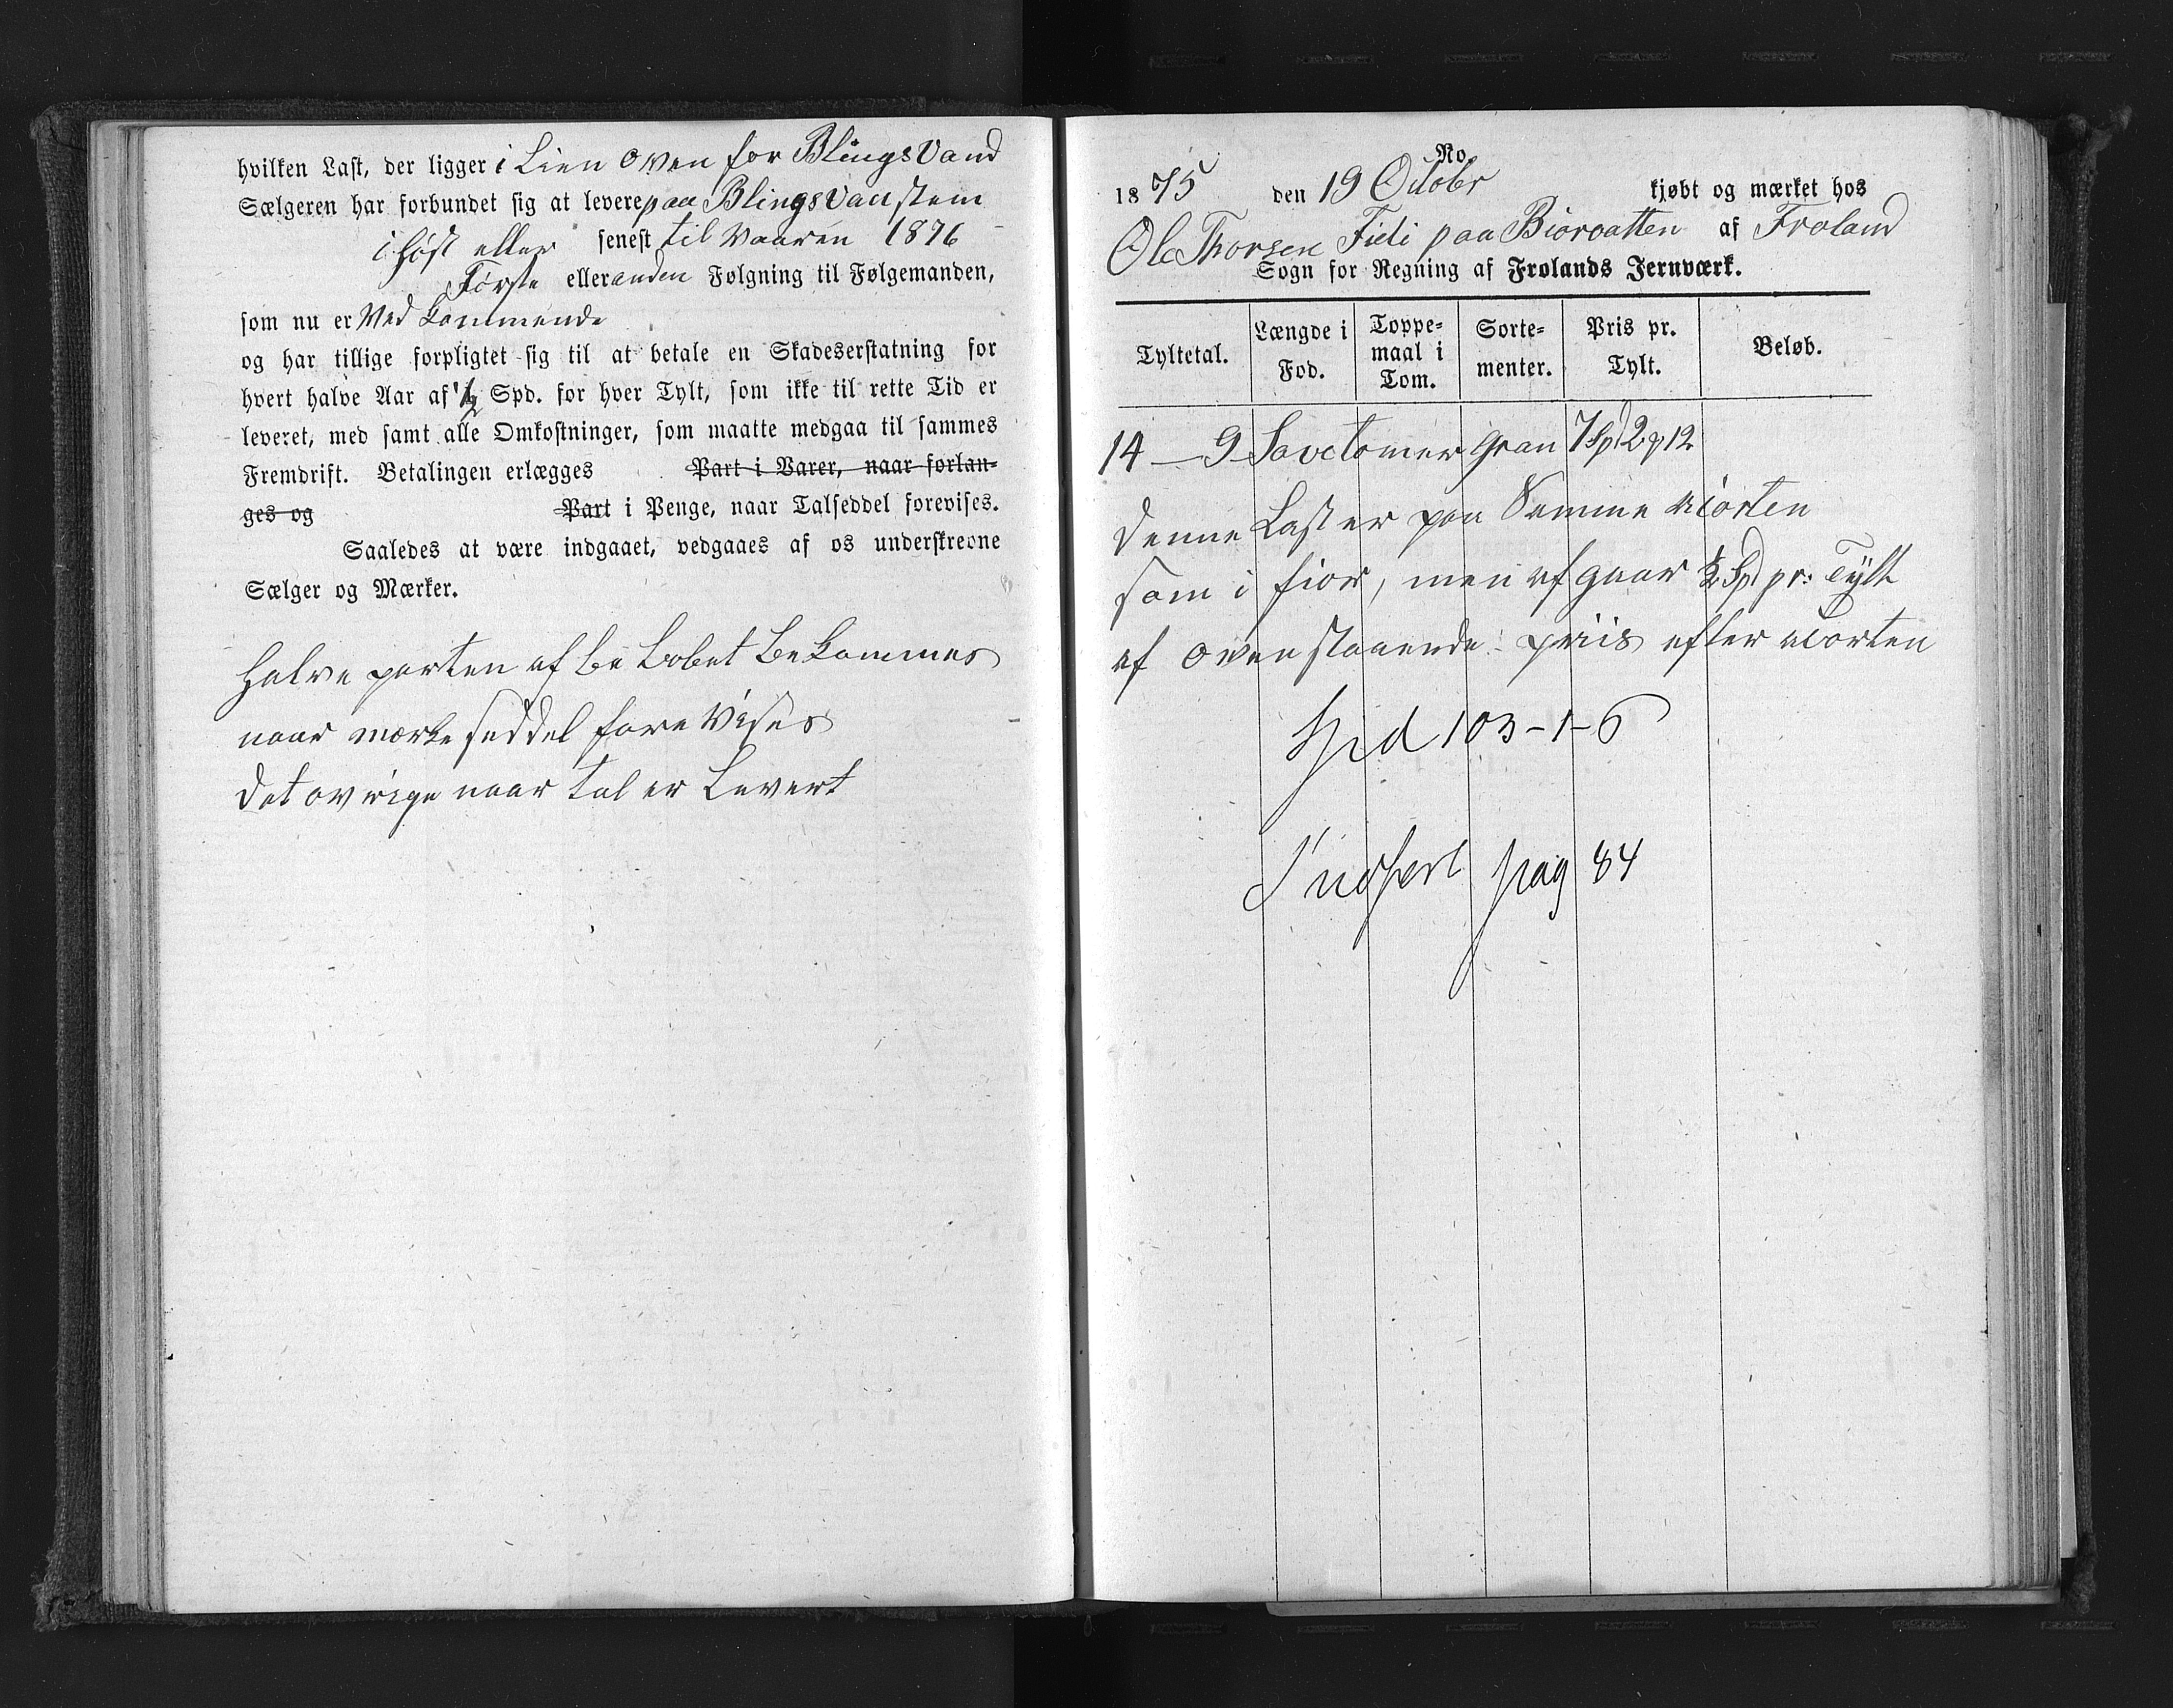 hvilken Last, der ligger i Lien oven for Blings Vand
Sælgeren har forbundet sig at levere paa Blings Van stem
i høst eller senest til Vaaren 1876
Første eller anden Følgning til Følgemanden,
som nu er Ved kommende
og har tillige forpligtet sig til at betale en Skadeserstatning for
hvert halve Aar af 1/2 Spd. for hver Tylt, som ikke til rette Tid er
leveret, med samt alle Omkostninger, som maatte medgaa til sammes
Fremdrift. Betalingen erlægges Part i Varer, naar forlan-
ges og Part i Penge, naar Talseddel forevises.
Saaledes at være indgaaet, vedgaaes af os underskrevne
Sælger og Mærker.
Halve parten af be Lobet be kommes
naar mærke seddel fore Vises
det ovrige naar tal er Levert
No.
1875 den 19 Octobr kjøbt og mærket hos
Ole Thorsen paa af Froland
Sogn for Regning af Frolands Jernværk.
Tyltetal. Længde i Fod. Toppe-maal i Tom. Sorte-menter. Pris pr. Tylt. Beløb.
14 — 9 Savetømer gran 7 Spd 2 12
denne Last er paa Samme
som i fior, men af gaar 1/2 Spd pr: Tylt
af oven staaende priis efter
Spd 103-1-6
Indført pag 84